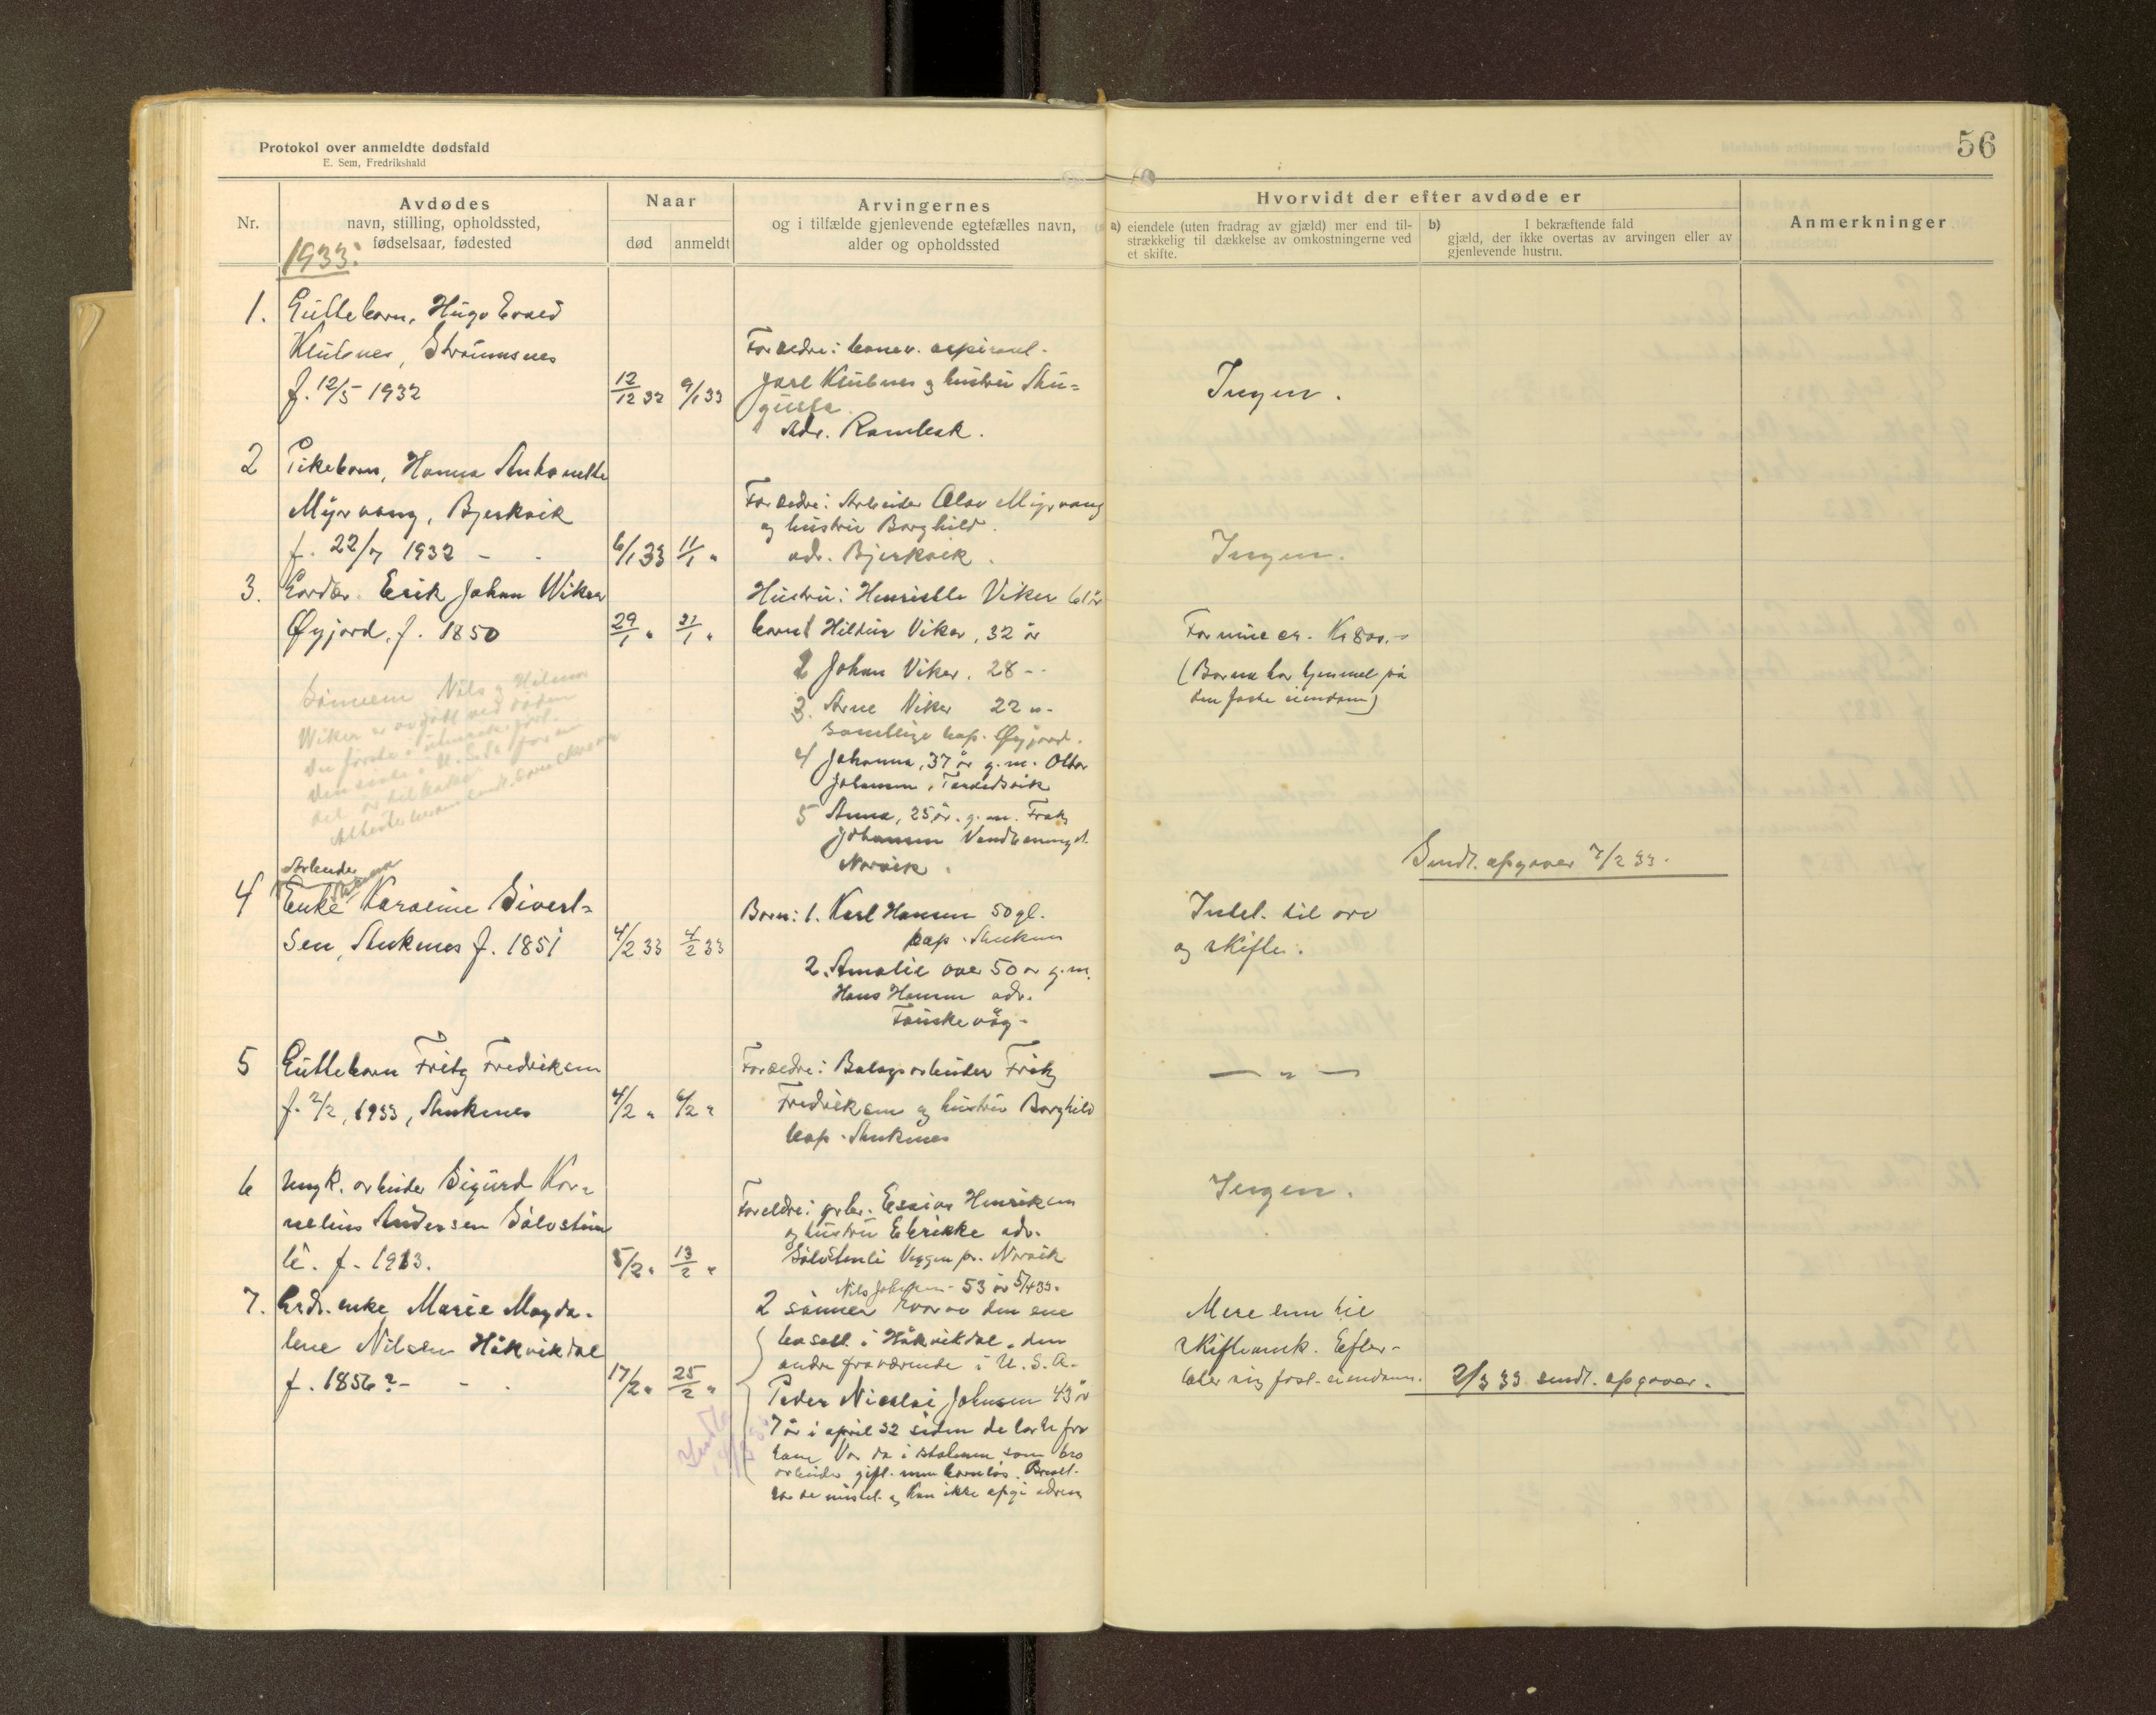 Protokol over anmeldte dødsfald
E. Sem, Fredrikshald
56
Nr.
Avdødes
navn, stilling, opholdssted,
fødselsaar, fødested
Naar
død
anmeldt
Arvingernes
og i tilfælde gjenlevende egtefælles navn,
alder og opholdssted
Hvorvidt der efter avdøde er
a) eiendele (uten fradrag av gjæld) mer end til-
strækkelig til dækkelse av omkostningerne ved
et skifte.
b) I bekræftende fald
gjæld, der ikke overtas av arvingen eller av
gjenlevende hustru.
Anmerkninger
1933:
1. Guttebarn, Hugo
Klubnes, Straumsnes
f. 12/5 1932
12/12 32 9/1 33
Forældre: aspirant
Jarl Klubnes og hustru Au=
gusta
Adr. Rombak.
Ingen.
2 Pikebarn, Hanna Antonette
Myrvang, Bjerkvik
f. 22/7 1932 -
6/1 33 11/1 "
Forældre: Arbeider Olav Myrvang
og hustru Borghild.
adr. Bjerkvik.
Ingen.
3. Gårdbr. Erik Johan Wiker
Øyjord, f. 1850
29/1 " 31/1 "
Hustru: Henrikke Viker 61 år
barn 1 Hildur Viker, 32 år
2 Johan Viker, 28 - "
3. Arne Viker 22 " -
samtlige bop. Øyjord.
4 Johanna, 37 år g. m.
Johansen,
5 Anna, 25 år. g. m.
Johansen
Narvik.
Formue ca. Kr 800.-
(Barna har hjemmel på
den faste eiendom)
Sønnene Nils og Hilmar
Wiker er avgått ved døden
den første i
den siste i U.S.A. for en
del år tilbake
Sendt. opgaver 7/2 33.
Arbeider
4 Enke Karoline Sivert=
sen, Ankenes f. 1851
4/2 33 4/2 33
Barn: 1. Karl Hansen 50 gl.
bop. Ankenes
2. Amalie over 50 år g. m.
Hans Hansen adr.
Intet. til arv
og skifte.
5 Guttebarn Fritz Fredriksen
f. 2/2, 1933, Ankenes
4/2 " 6/2 "
Forældre: Fritz
Fredriksen og hustru Borghild
bop. Ankenes
— " —
6 Ungk. arbeider Sigurd Kor=
nelius Andersen Sølvstein
li. f. 1913.
5/2 " 13/2 "
Foreldre: gbr. Esaias Henriksen
og hustru adr.
Sølvstenli Veggen pr. Narvik
Ingen.
7. Grdr. enke Marie Magda-
lene Nilsen Håkvikdal
f. 1856? - - .
17/2 " 25/2 "
Nils Johnsen - 53 år 5/4 33.
2 sønner hvorav den ene
bosatt i Håkvikdal, den
andre fraværende i U.S.A.
Peder Nicolai Johnsen 43 år
7 år i april 32 siden de hørte fra
ham. Var da i som bro
arbeider gift. men barnløs.
og kan ikke opgi adresse
Mere enn til
skifteomk. Efter-
later sig fast. eiendom.
2/3 33 sendt. opgaver.